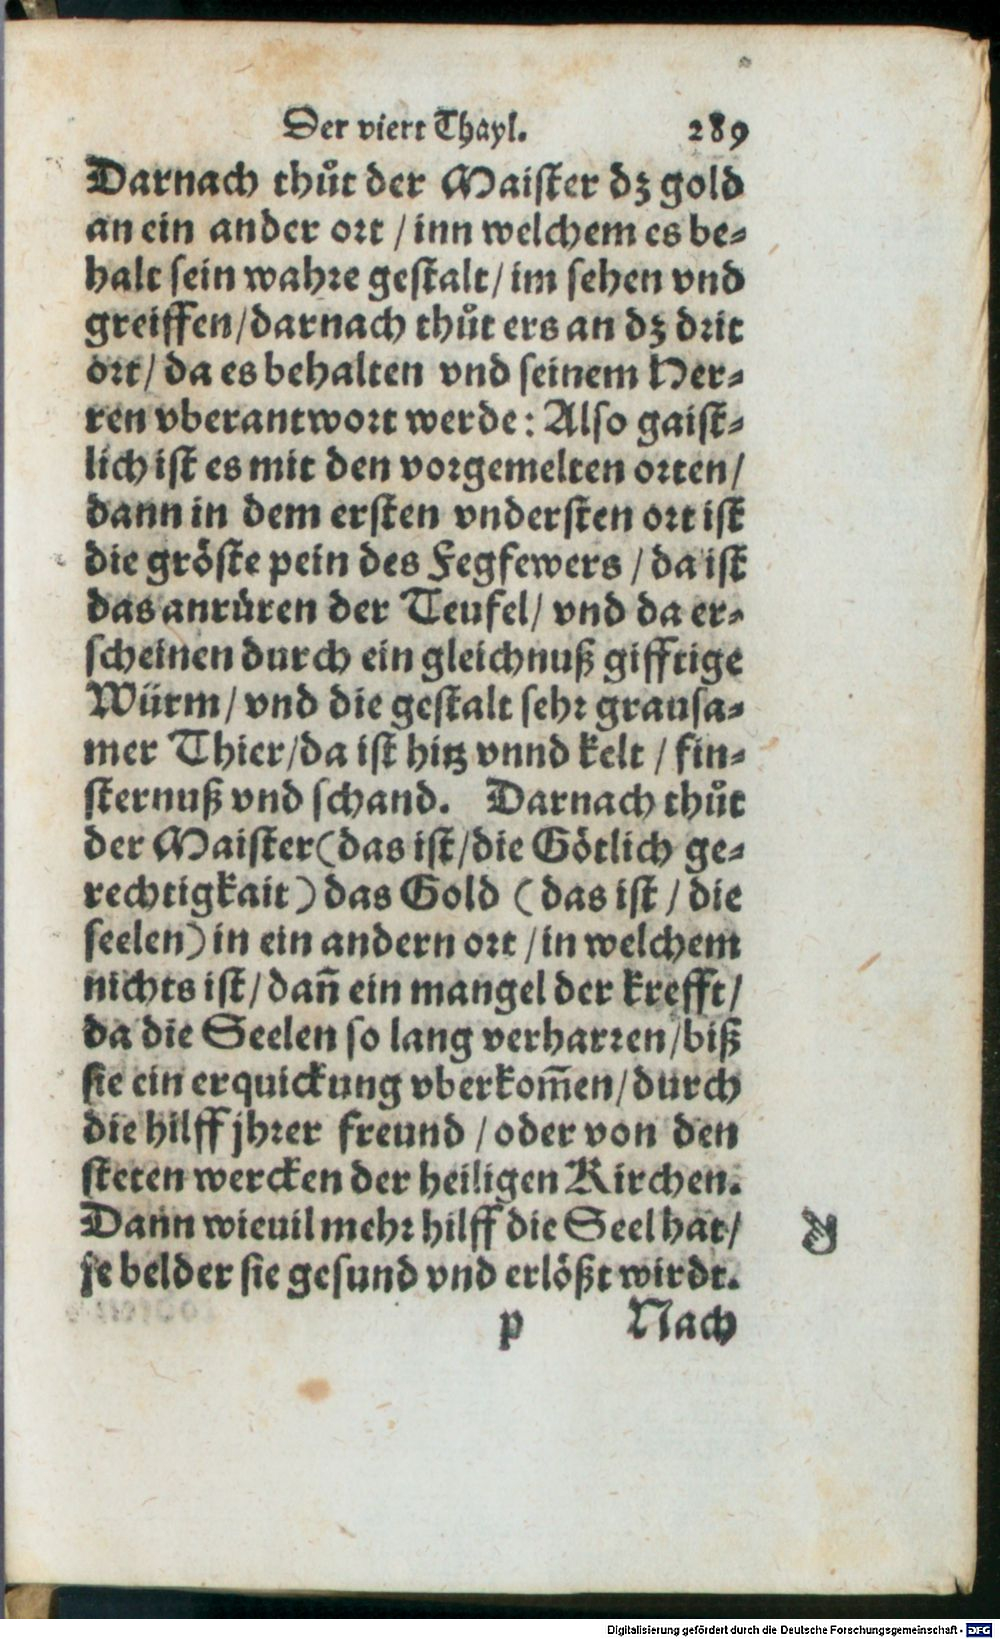 Der viert Thayl. 289
Darnach thuͦt der Maister dz gold
an ein ander ort / inn welchem es be-
halt sein wahre gestalt / im sehen vnd
greiffen / darnach thuͦt ers an dz drit
ort / da es behalten vnd seinem Her-
ren vberantwort werde: Also gaist-
lich ist es mit den vorgemelten orten /
dann in dem ersten vndersten ort ist
die gröste pein des Fegfewers / da ist
das anrüren der Teufel / vnd da er-
scheinen durch ein gleichnuß gifftige
Würm / vnd die gestalt sehr grausa-
mer Thier / da ist hitz vnnd kelt / fin-
sternuß vnd schand. Darnach thuͦt
der Maister (das ist / die Götlich ge-
rechtigkait) das Gold (das ist / die
seelen) in ein andern ort / in welchem
nichts ist / dañ ein mangel der krefft /
da die Seelen so lang verharren / biß
sie ein erquickung vberkom̃en / durch
die hilff jhrer freund / oder von den
steten wercken der heiligen Kirchen.
Dann wieuil mehr hilff die Seel hat /
je belder sie gesund vnd erlößt wirdt.
p Nach
R
Digitalisierung gefördert durch die Deutsche Forschungsgemeinschaft - DFG